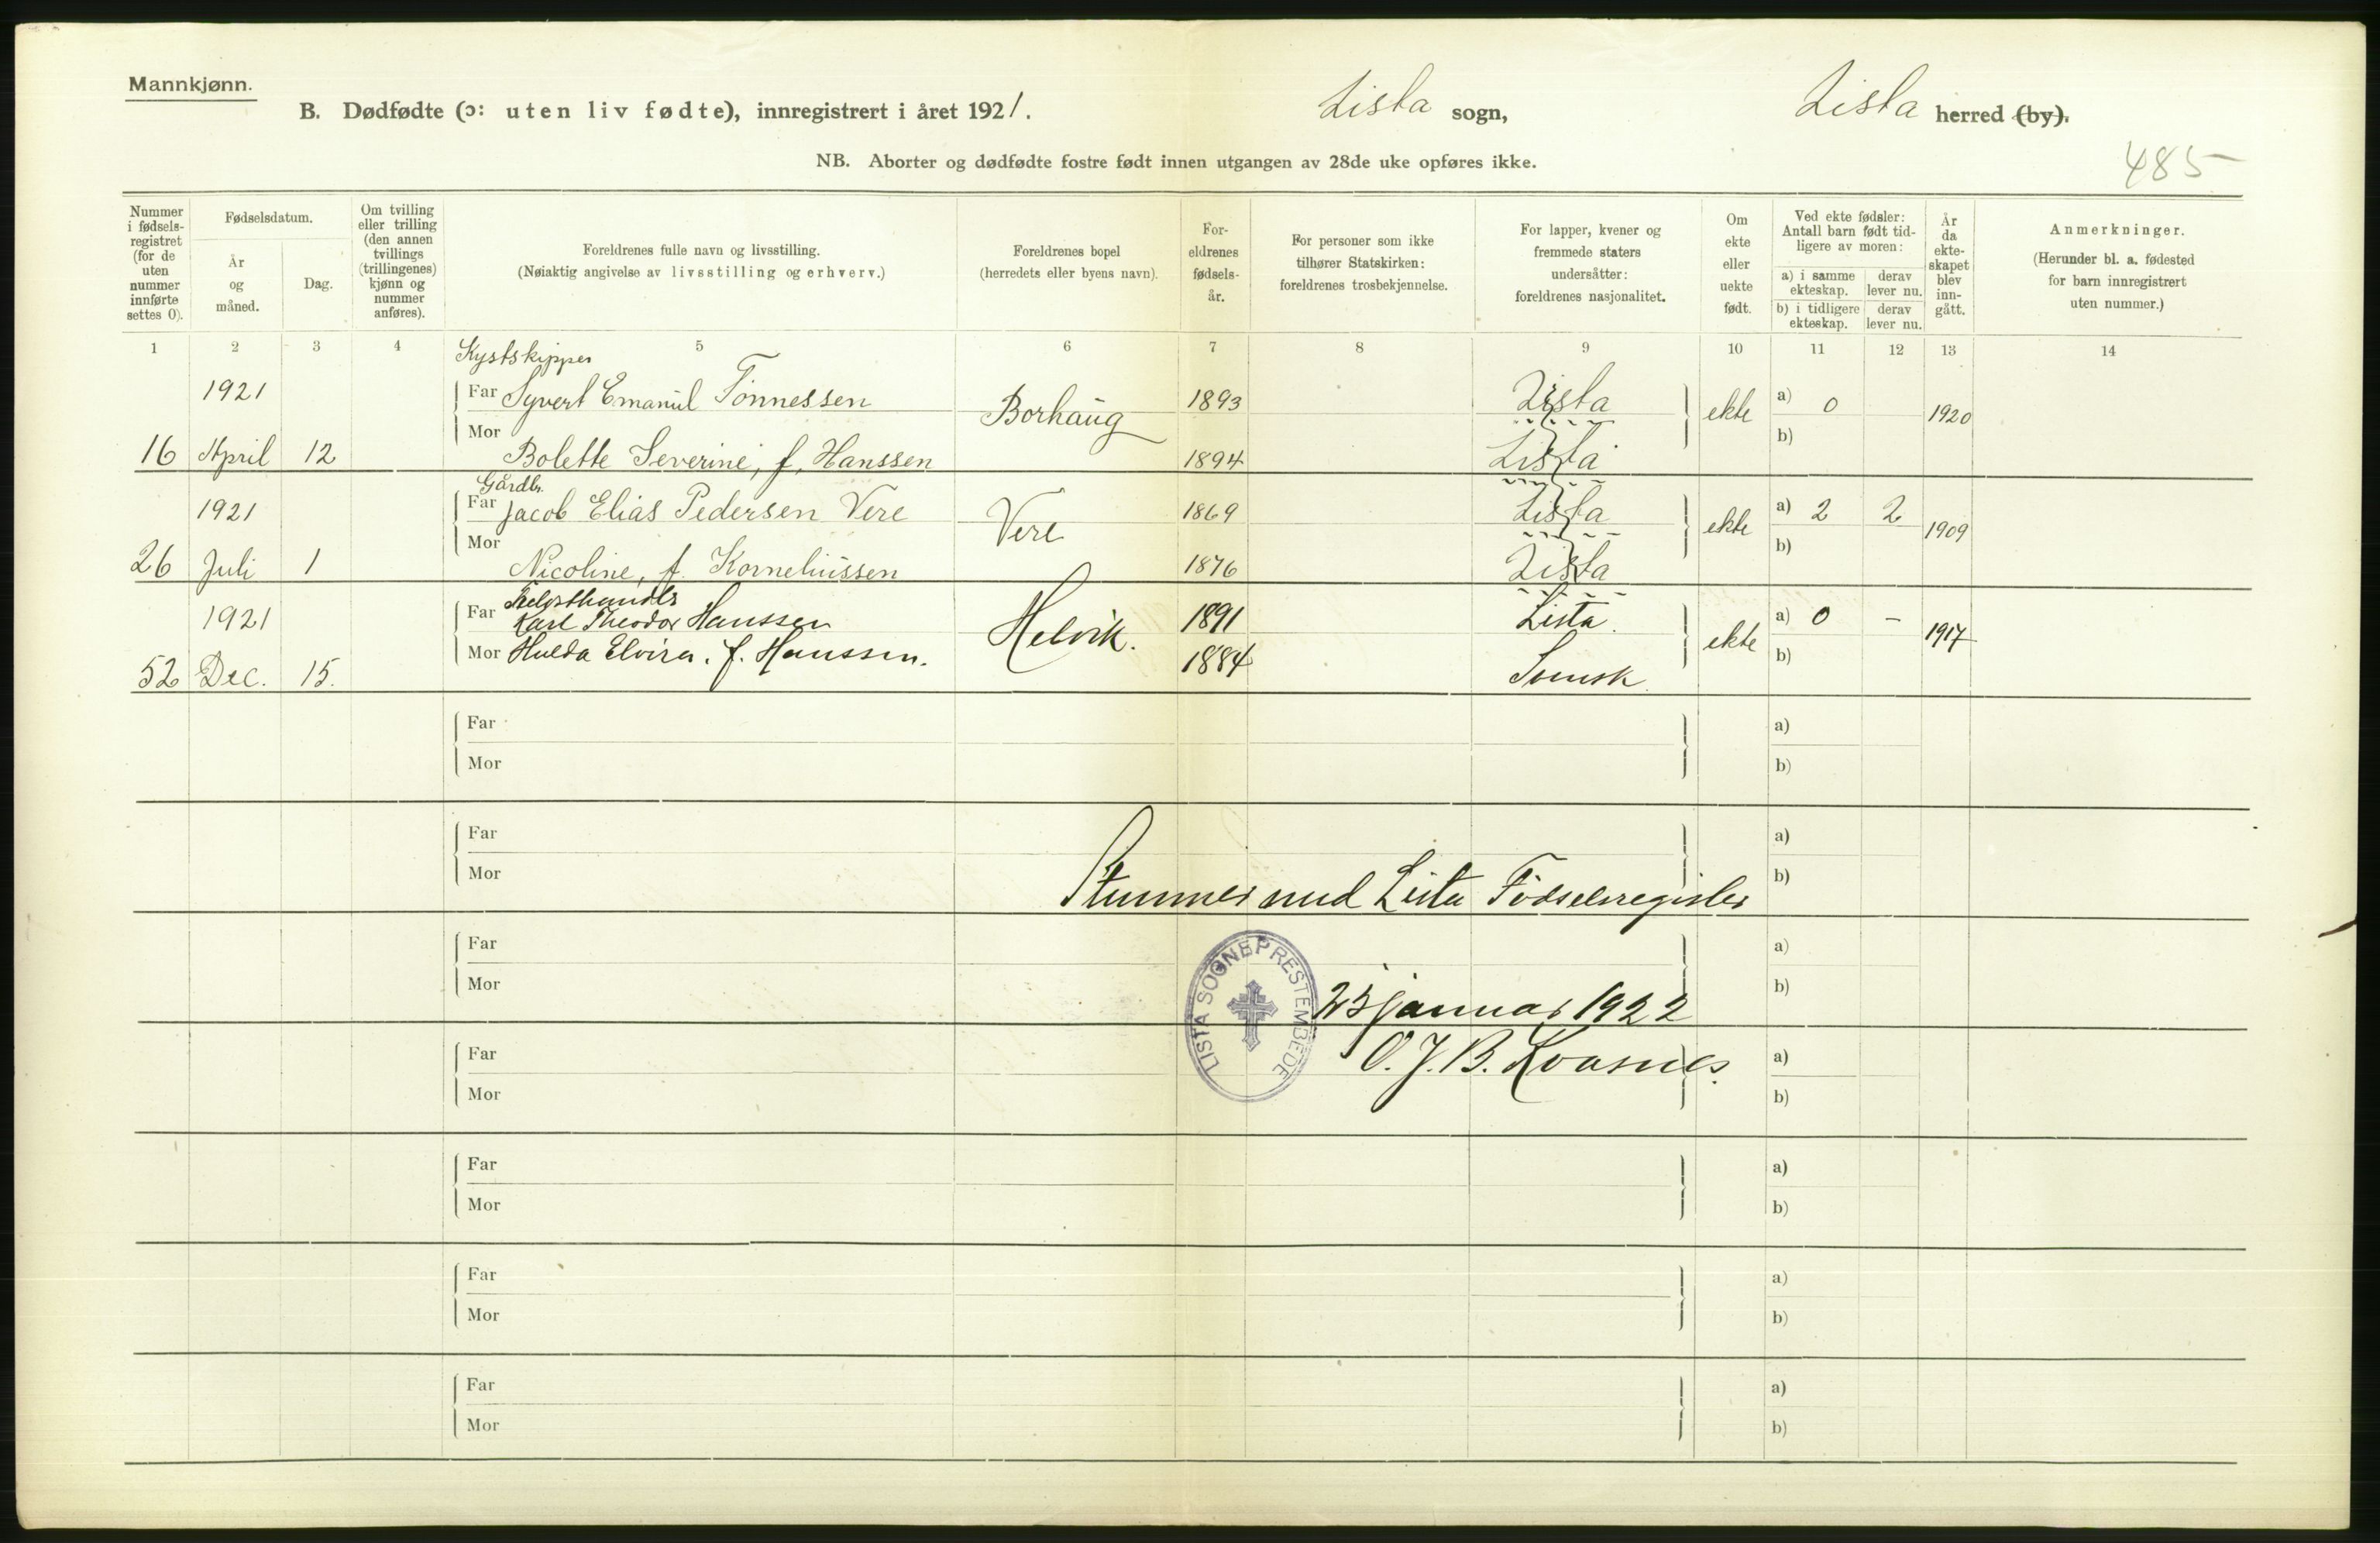 Mannkjønn.
B. Dødfødte (ɔ: uten liv fødte), innregistrert i året 1921. Lista sogn, Lista herred (by).
485
NB. Aborter og dødfødte fostre født innen utgangen av 28de uke opføres ikke.
Nummer i fødsels-registret (for de uten nummer innførte settes 0).
Fødselsdatum.
År og måned.
Dag.
Om tvilling eller trilling (den annen tvillings (trillingenes) kjønn og nummer anføres).
Foreldrenes fulle navn og livsstilling.
(Nøiaktig angivelse av livsstilling og erhverv.)
Foreldrenes bopel
(herredets eller byens navn).
For-eldrenes fødsels-år.
For personer som ikke tilhører Statskirken: foreldrenes trosbekjennelse.
For lapper, kvener og fremmede staters undersåtter: foreldrenes nasjonalitet.
Om ekte eller uekte født.
Ved ekte fødsler: Antall barn født tid-ligere av moren:
a) i samme ekteskap.
derav lever nu.
b) i tidligere ekteskap.
derav lever nu.
År da ekte-skapet blev inn-gått.
Anmerkninger.
(Herunder bl. a. fødested for barn innregistrert uten nummer.)
1 2 3 4 5 6 7 8 9 10 11 12 13 14
Kystskipper
1921 Far Syvert Emanuel Tønnessen Borhaug 1893 Lista ekte a) 0 1920
16 April 12 Mor Bolette Severine, f. Hanssen 1894 Lista b)
Gårdbr.
1921 Far Jacob Elias Pedersen Vere Vere 1869 Lista ekte a) 2 2 1909
26 Juli 1 Mor Nicoline, f. Korneliussen 1876 Lista b)
1921 Far Karl Theodor Hanssen Helvik. 1891 Lista. ekte a) 0 - 1917
52 Dec. 15. Mor Hulda Elvira. f. Hanssen. 1884 Svensk b)
Far a)
Mor b)
Far a)
Mor b)
Stemmer med Lista Fødselsregister
Far a)
Mor b)
LISTA SOGNEPRESTEMBEDE
25 januar 1922
Far a)
O. J. B. Kvasnes
Mor b)
Far a)
Mor b)
Far a)
Mor b)
Far a)
Mor b)